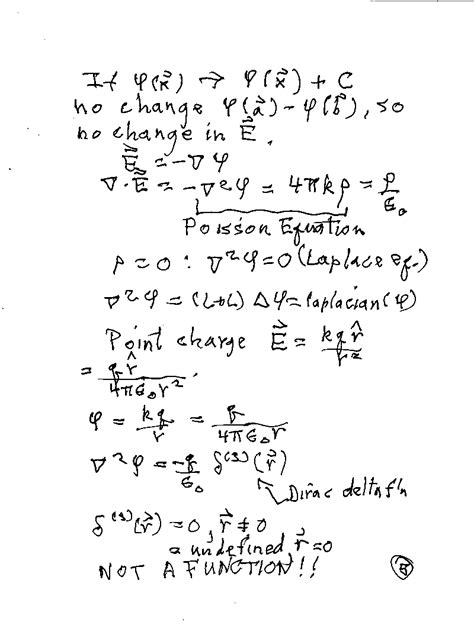 If φ(x⃗) → φ(x⃗) + C
no change φ(a⃗) - φ(b⃗), so
no change in E⃗.
E⃗ = -∇φ
∇·E⃗ = -∇²φ = 4πkρ = ρ/ε₀
Poisson Equation
ρ = 0 : ∇²φ = 0 (Laplace eq.)
∇²φ = Δφ = laplacian(φ)
Point charge E⃗ = kq r̂/r²
= q r̂/4πε₀r².
φ = kq/r = q/4πε₀r
∇²φ = -q/ε₀ δ⁽³⁾(r⃗)
Dirac delta f'n
δ⁽³⁾(r⃗) = 0, r⃗ ≠ 0
undefined r⃗ = 0
NOT A FUNCTION!!